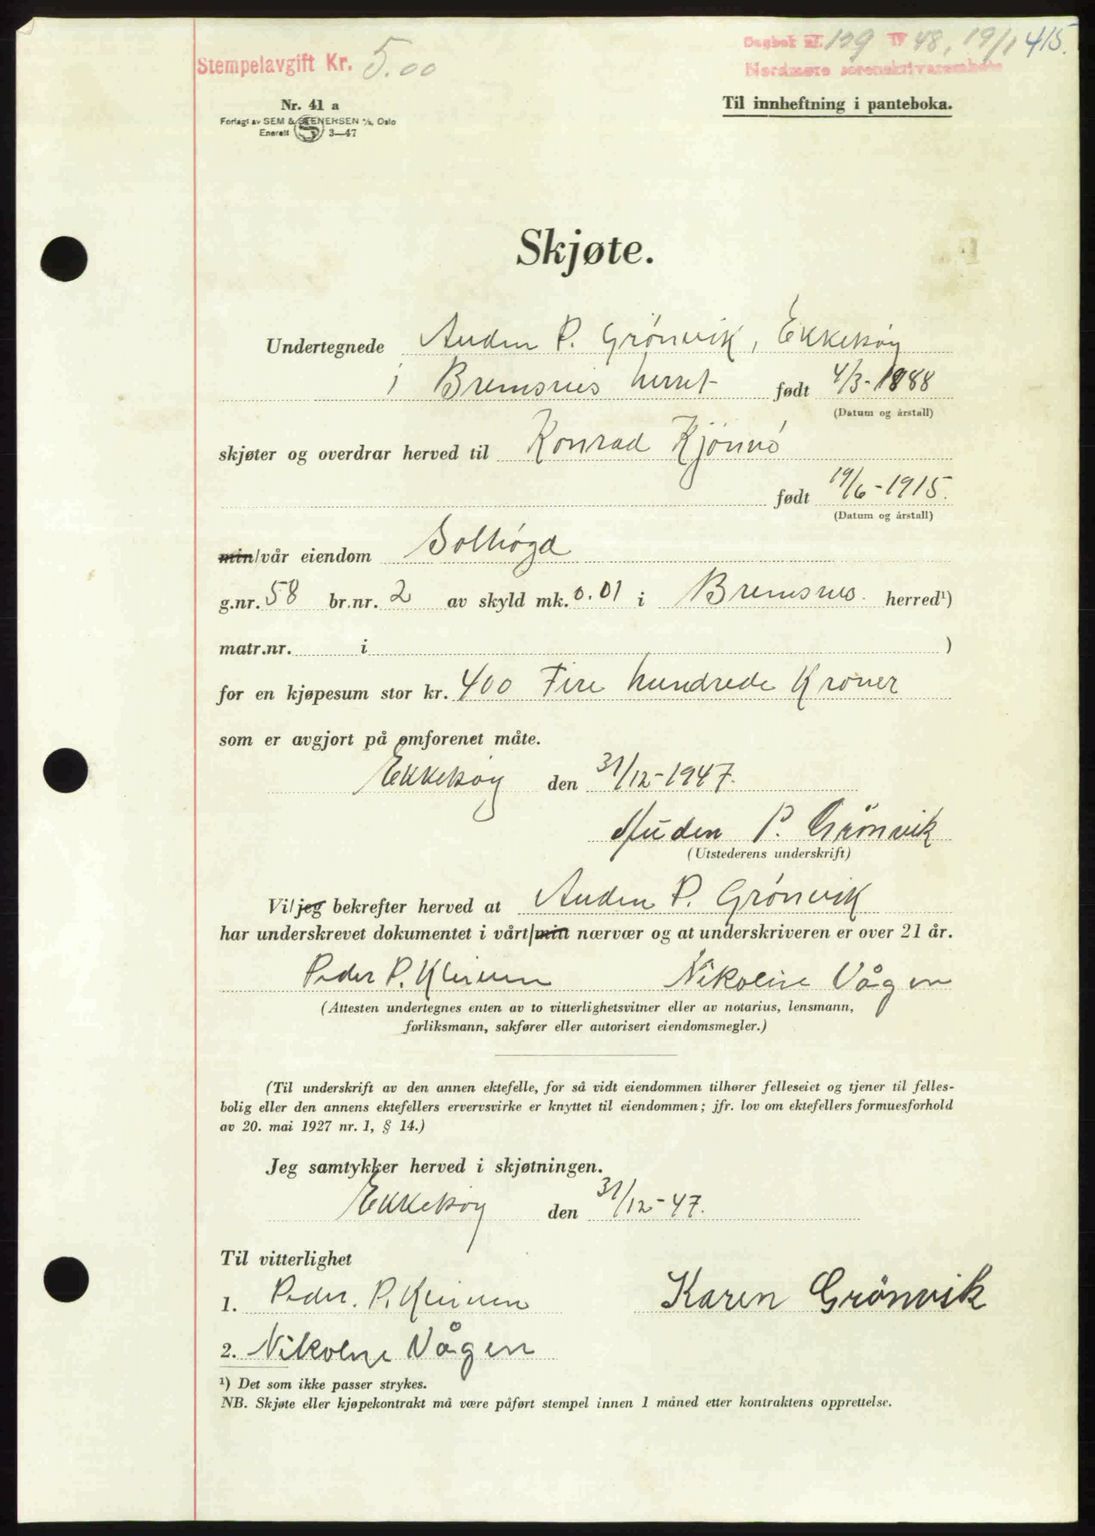 Stempelavgift Kr. 5.00
Dagbok nr. 129 19 48, 19/1 415.
Nordmøre sorenskriverembete
Nr. 41 a
Forlagt av SEM & STENERSEN A/S, Oslo
Enerett S 3—47
Til innheftning i panteboka.
Skjøte.
Undertegnede Auden P. Grönvik, Ekkeköy
i Bremsnes herret født 4/3-1888
(Datum og årstall)
skjøter og overdrar herved til Konrad Kjönnö
født 19/6-1915.
(Datum og årstall)
min/vår eiendom Solhögd
g.nr. 58 br.nr. 2 av skyld mk. 0.01 i Bremsnes herred¹)
matr.nr. i )
for en kjøpesum stor kr. 400 Fire hundrede Kroner
som er avgjort på omforenet måte.
Ekkeköy den 31/12-1947.
Auden P. Grönvik
(Utstederens underskrift)
Vi/jeg bekrefter herved at Auden P. Grönvik
har underskrevet dokumentet i vårt/min nærvær og at underskriveren er over 21 år.
Peder P. Nikoline Vågen
(Attesten undertegnes enten av to vitterlighetsvitner eller av notarius, lensmann,
forliksmann, sakfører eller autorisert eiendomsmegler.)
(Til underskrift av den annen ektefelle, for så vidt eiendommen tilhører felleseiet og tjener til felles-
bolig eller den annens ektefellers ervervsvirke er knyttet til eiendommen; jfr. lov om ektefellers formuesforhold
av 20. mai 1927 nr. 1, § 14.)
Jeg samtykker herved i skjøtningen.
Ekkeköy den 31/12-47.
Til vitterlighet
1. Peder. P. Karen Grönvik
2. Nikoline Vågen
¹) Det som ikke passer strykes.
NB. Skjøte eller kjøpekontrakt må være påført stempel innen 1 måned etter kontraktens opprettelse.